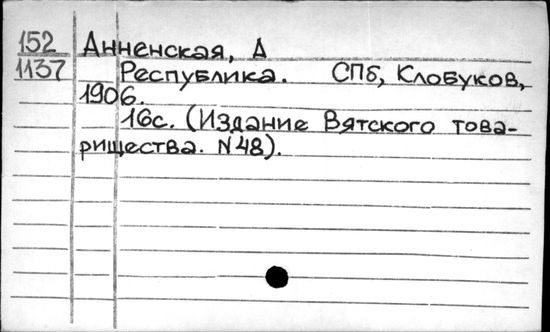 152 Анненская, Д
1137 Республика. СПб, Клобуков,
1906.
16с. (Издание Вятского това-
рищества. N48).